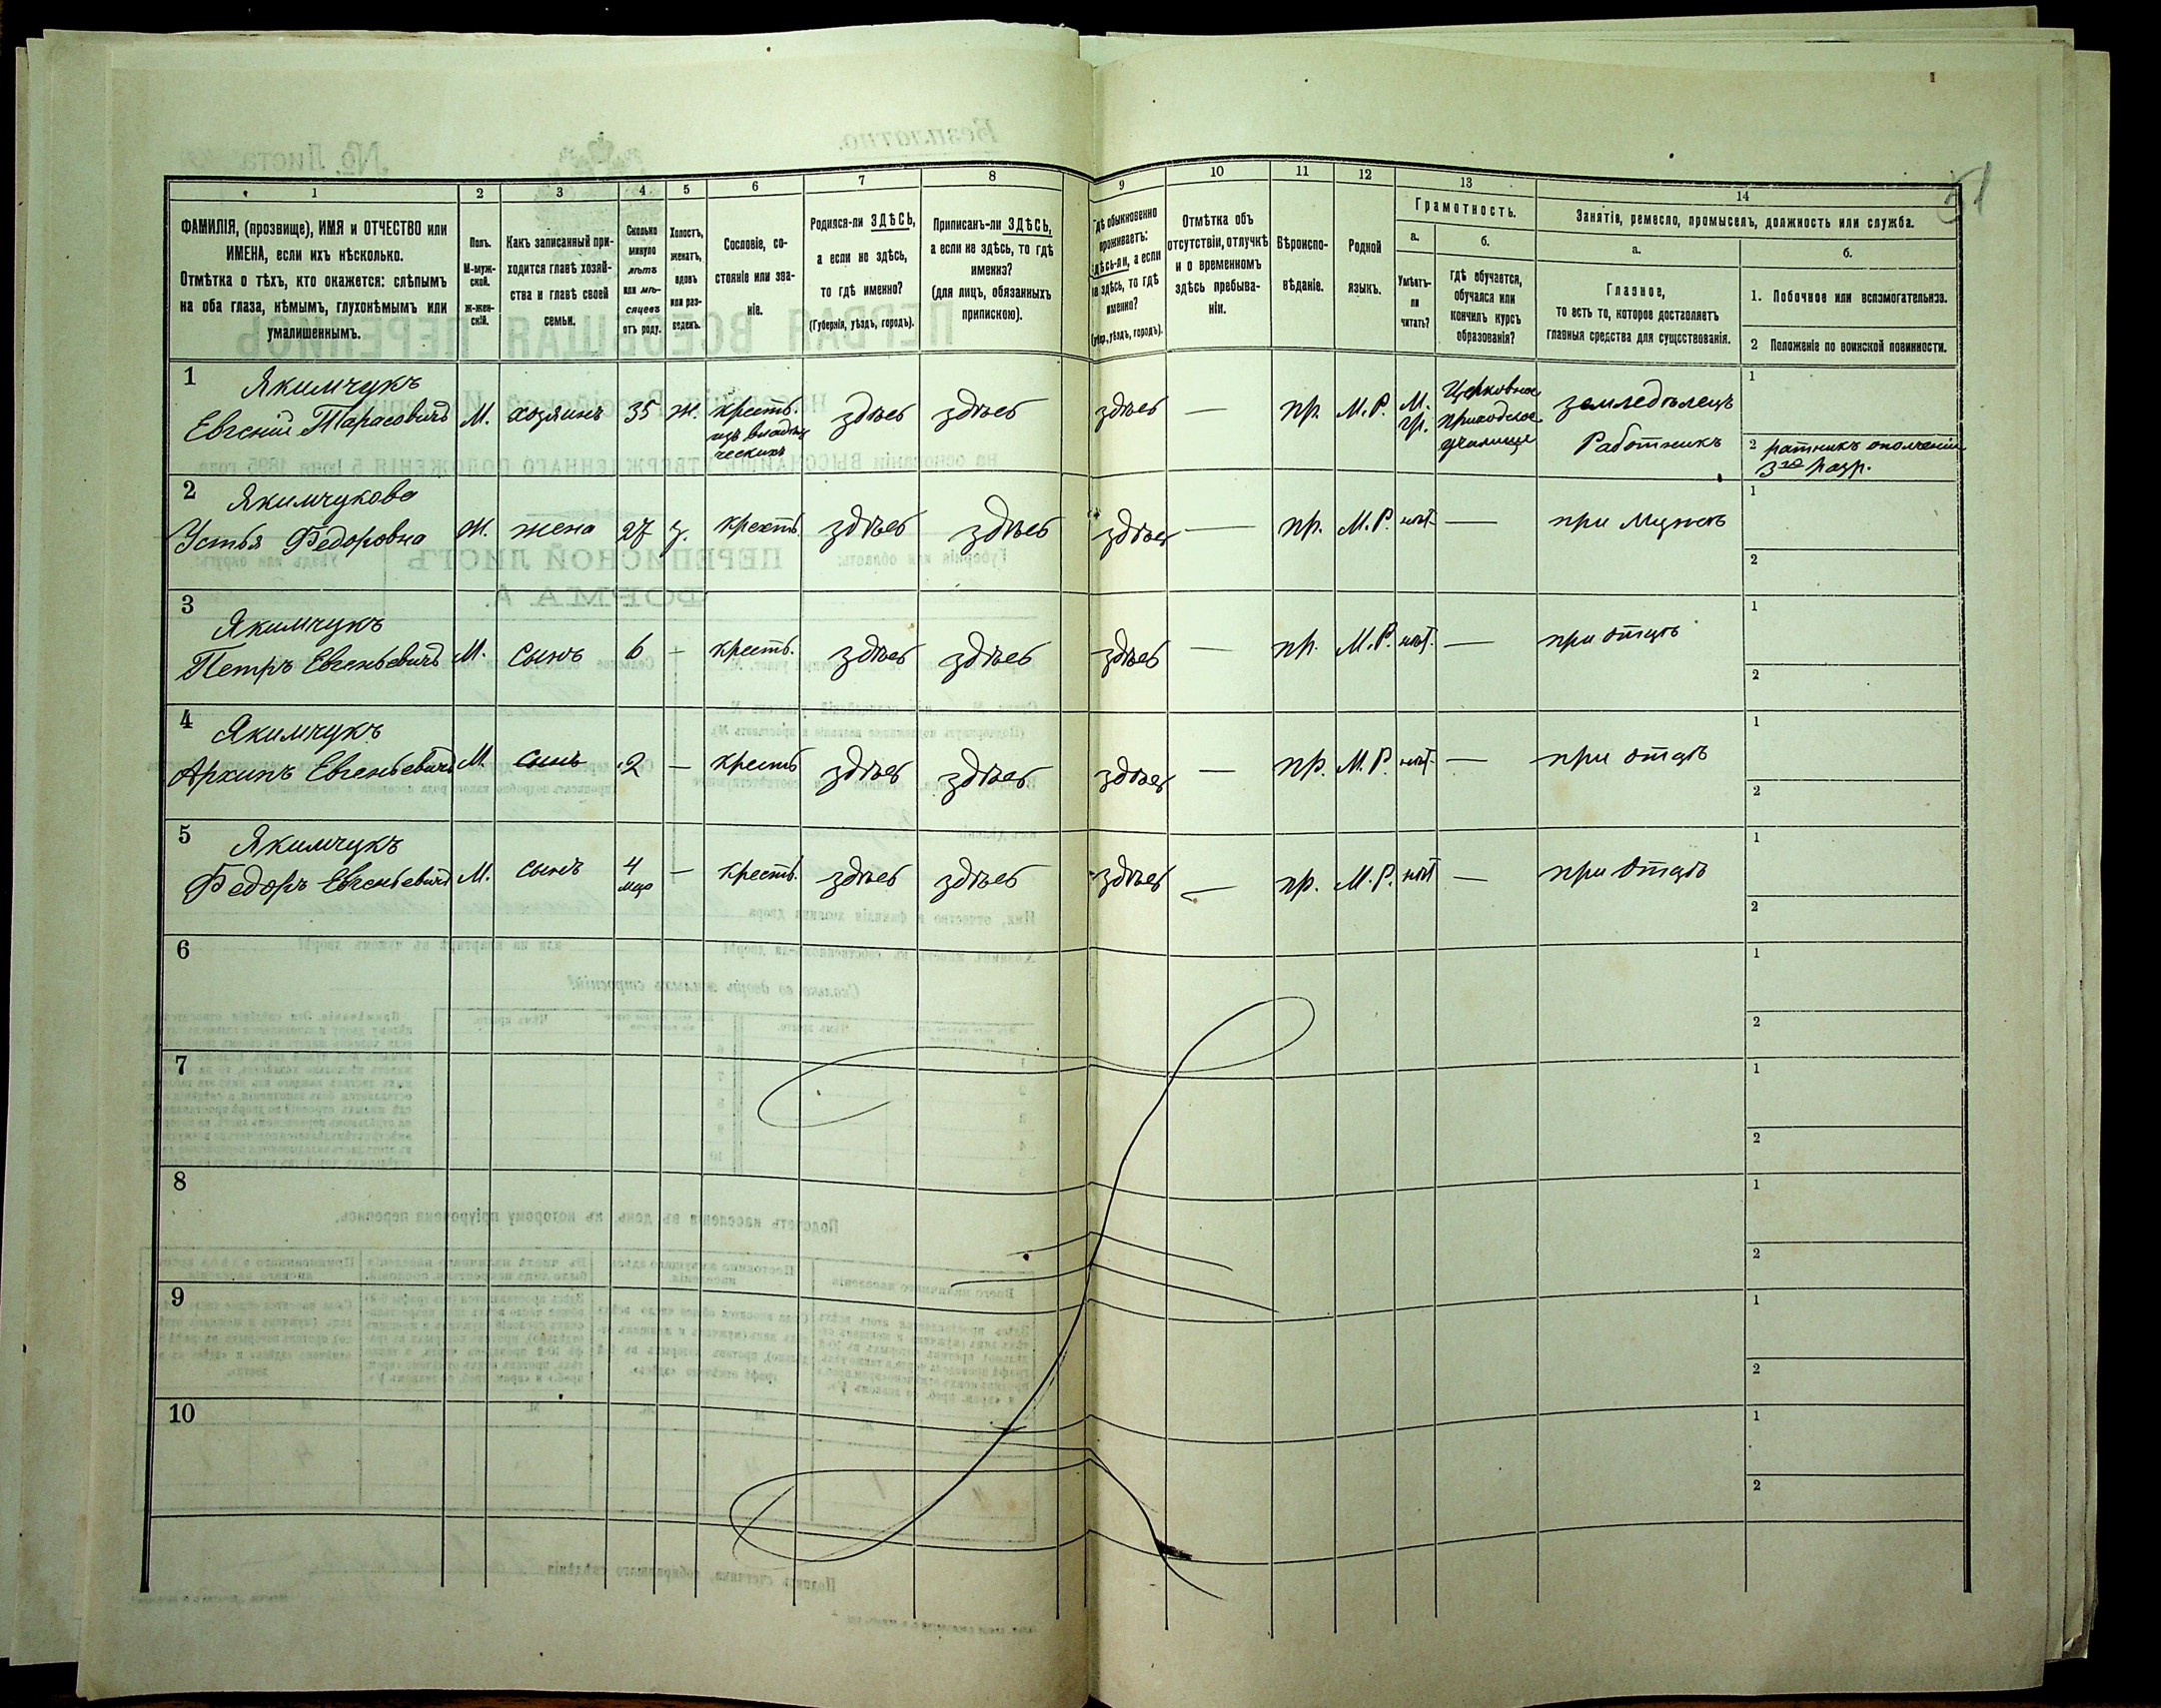 1 2 3 4 5 6 7 8 9 10 11 12 13 14
ФАМИЛІЯ, (прозвище), ИМЯ и ОТЧЕСТВО или
ИМЕНА, если ихъ нѣсколько.
Отмѣтка о тѣхъ, кто окажется: слѣпымъ
на оба глаза, нѣмымъ, глухонѣмымъ или
умалишеннымъ.
Полъ.
М-муж-
ской.
Ж-жен-
скій.
Какъ записанный при-
ходится главѣ хозяй-
ства и главѣ своей
семьи.
Сколько
минуло
лѣтъ
или мѣ-
сяцевъ
отъ роду.
Холостъ,
женатъ,
вдовъ
или раз-
веденъ.
Сословіе, со-
стояніе или зва-
ніе.
Родился-ли ЗДѢСЬ,
а если не здѣсь,
то гдѣ именно?
(Губернія, уѣздъ, городъ).
Приписанъ-ли ЗДѢСЬ,
а если не здѣсь, то гдѣ
именно?
(для лицъ, обязанныхъ
припискою).
Гдѣ обыкновенно
проживаетъ:
здѣсь-ли, а если
не здѣсь, то гдѣ
именно?
(губер., уѣздъ, городъ).
Отмѣтка объ
отсутствіи, отлучкѣ
и о временномъ
здѣсь пребыва-
ніи.
Вѣроиспо-
вѣданіе.
Родной
языкъ.
Грамотность.
а.
Умѣетъ-
ли
читать?
б.
гдѣ обучается,
обучался или
кончилъ курсъ
образованія?
Занятіе, ремесло, промыселъ, должность или служба.
а.
Главное,
то есть то, которое доставляетъ
главныя средства для существованія.
б.
1. Побочное или вспомогательное.
2 Положеніе по воинской повинности.
1 Якимчукъ
Евгеній Тарасовичъ М. хозяинъ 35 ж. крестъ. здѣсь здѣсь здѣсь — пр. М.Р. М. Церковное земледѣлецъ 1
изъ владѣль
ческихъ
гр. приходское
училище Работникъ 2 ратникъ ополченія
3го разр.
2 Якимчукова
Устья Федоровна Ж. жена 27 з. крестъ. здѣсь здѣсь здѣсь — пр. М.Р. нѣт. — при мужѣ 1
2
3 Якимчукъ
Петръ Евгеньевичъ М. сынъ 6 — крестъ. здѣсь здѣсь здѣсь — пр. М.Р. нѣт. — при отцѣ 1
2
4 Якимчукъ
Архипъ Евгеньевичъ М. сынъ 2 — крестъ здѣсь здѣсь здѣсь — пр. М.Р. нѣт. — при отцѣ 1
2
5 Якимчукъ
Федоръ Евгеньевичъ М. сынъ 4 — крестъ. здѣсь здѣсь здѣсь — пр. М.Р. нѣт — при отцѣ 1
мца
2
6 1
2
7 1
2
8 1
2
9 1
2
10 1
2